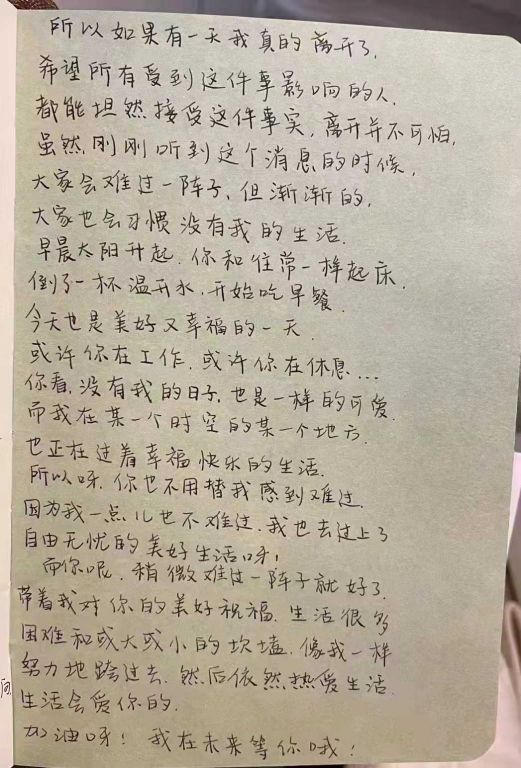 所以如果有一天我真的离开了,
希望所有受到这件事影响的人,
都能坦然接受这件事实,离开并不可怕,
虽然刚刚听到这个消息的时候,
大家会难过一阵子,但渐渐的,
大家也会习惯没有我的生活.
早晨太阳升起.你和往常一样起床,
倒了一杯温开水,开始吃早餐.
今天也是美好又幸福的一天.
或许你在工作,或许你在休息...
你看,没有我的日子,也是一样的可爱.
而我在某一个时空的某一个地方.
也正在过着幸福快乐的生活.
所以呀.你也不用替我感到难过.
因为我一点儿也不难过.我也去过上了
自由无忧的美好生活呀!
而你呢.稍微难过一阵子就好了.
带着我对你的美好祝福.生活很多
困难和或大或小的坎墙.像我一样
努力地跨过去.然后依然热爱生活.
生活会爱你的.
加油呀!我在未来等你哦!